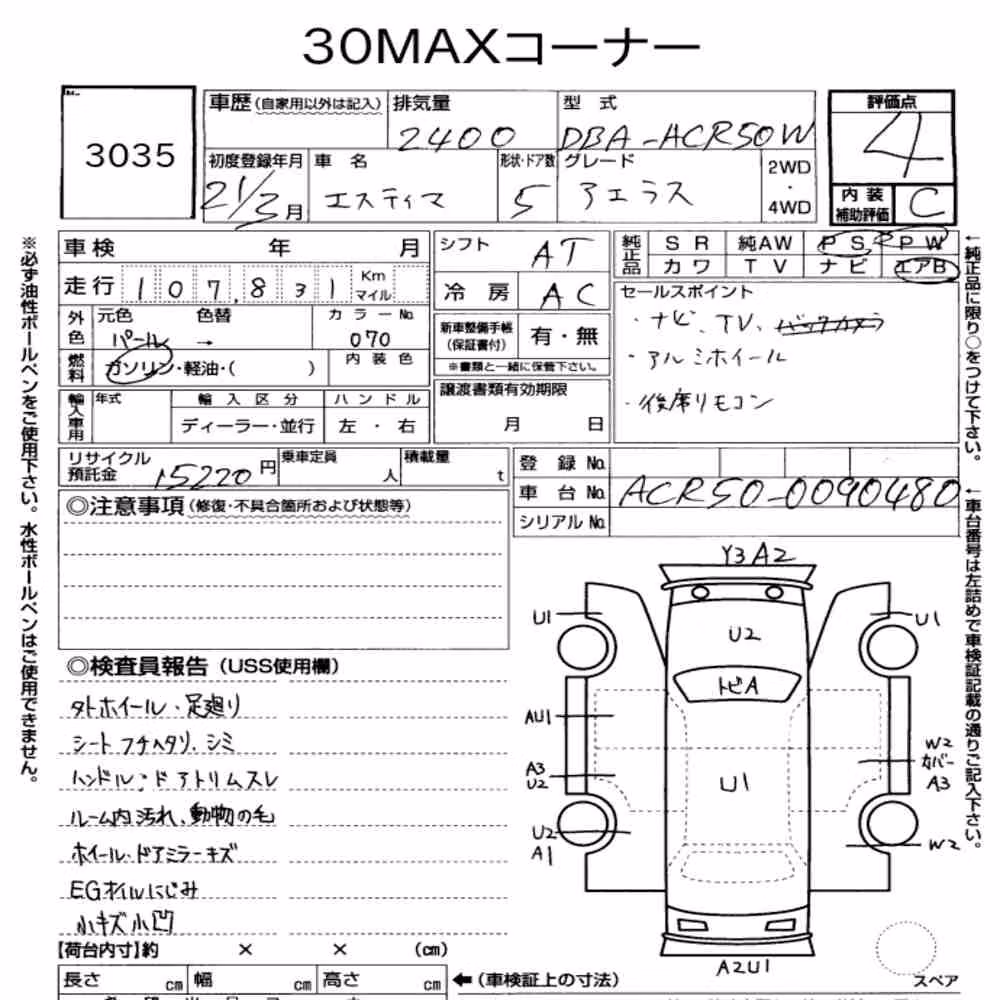 30MAXコーナー
3035
車歴 (自家用以外は記入) 排気量 型 式 評価点
2400 DBA-ACR50W 4
初度登録年月 車 名 形状・ドア数 グレード 2WD・4WD 内装補助評価
21/3月 エスティマ 5 アエラス C
車検 年 月 シフト AT 純正品 SR 純AW PS PW
カワ TV ナビ エアB
走行 107,831 Km マイル 冷房 AC セールスポイント
外色 元色 色替 カラーNo.
パール → 070
新車整備手帳(保証書付) 有・無
※書類と一緒に保管下さい。
・ナビ、TV、バックカメラ
・アルミホイール
・後席リモコン
燃料 ガソリン・軽油・( ) 内装色
譲渡書類有効期限
月 日
輸入車用 年式 輸入区分 ハンドル
ディーラー・並行 左・右
リサイクル預託金 15220円 乗車定員 人 積載量 t
登録No.
車台No. ACR50-0090480
シリアルNo.
◎注意事項(修復・不具合箇所および状態等)
◎検査員報告(USS使用欄)
タトホイール・足廻り
シートフチヘタリ、シミ
ハンドル・ドアトリムスレ
ルーム内汚れ、動物の毛
ホイール・ドアミラーキズ
EGオイルにじみ
小キズ小凹
Y3 A2
U1 U1
U2
トビA
AU1
W2
カバー
A3
A3
U2
U1
U2
A1
W2
A2U1
スペア
【荷台内寸】約 × × (cm)
長さ cm 幅 cm 高さ cm ←(車検証上の寸法)
※必ず油性ボールペンをご使用下さい。水性ボールペンはご使用できません。
←純正品に限り○をつけて下さい。
←車台番号は左詰めで車検証記載の通りご記入下さい。